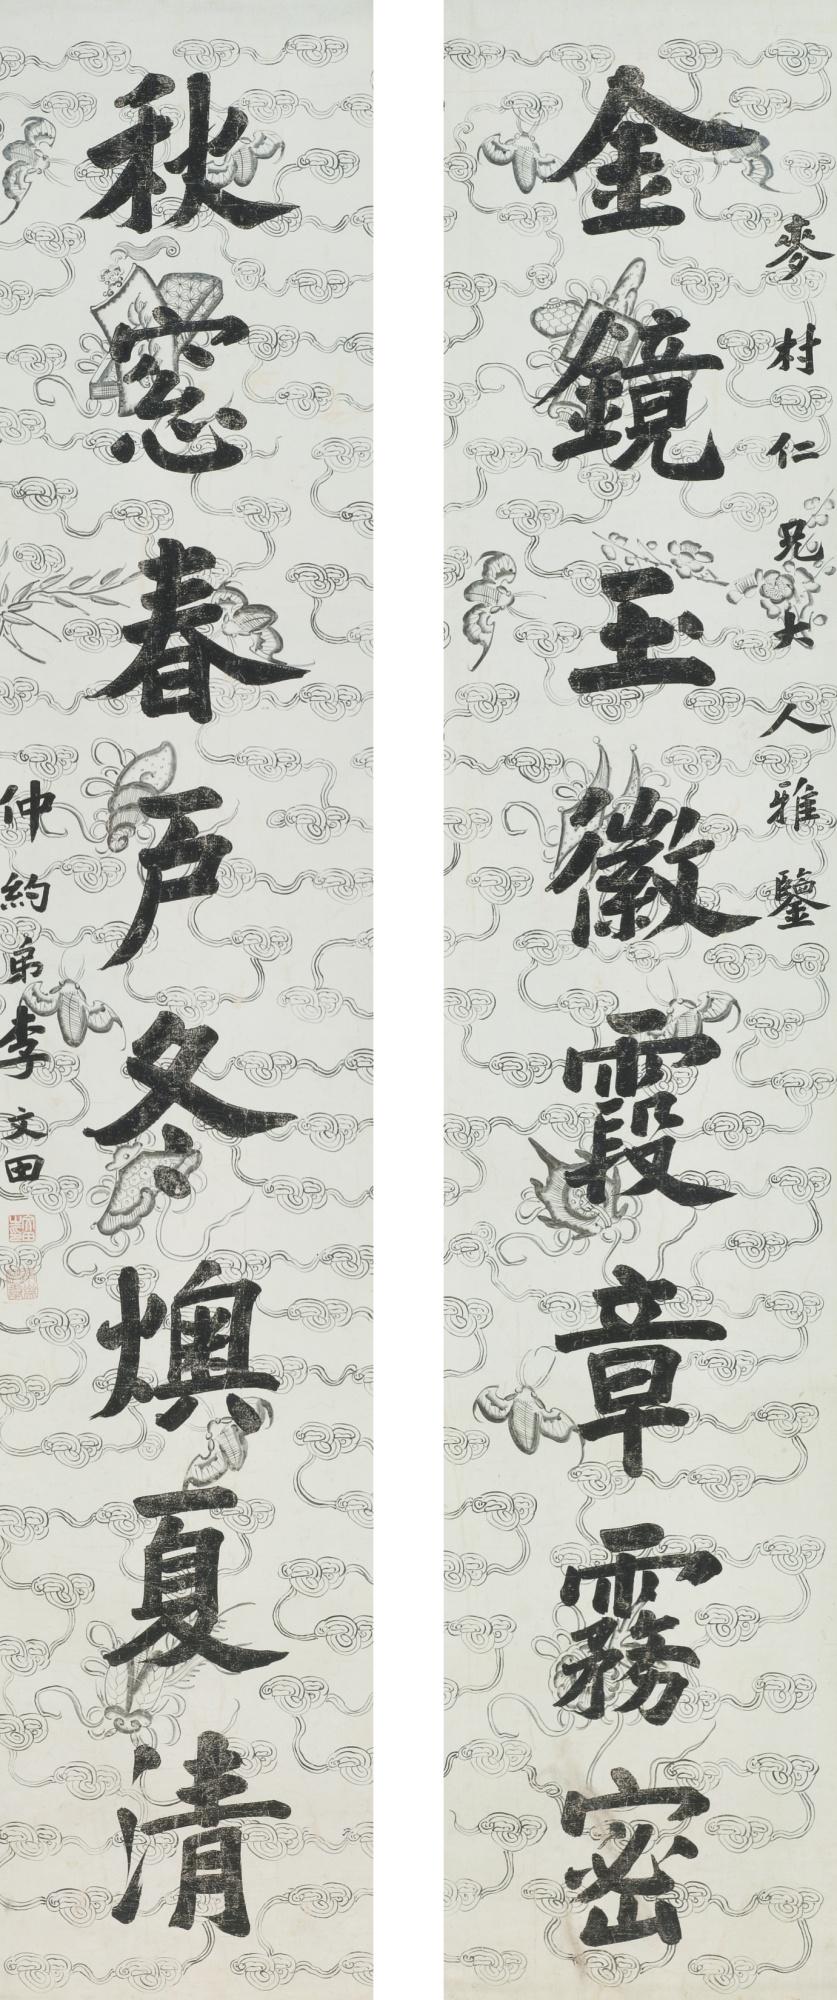 麥村仁兄大人雅鑒
金鏡玉徽霞章霧密
秋窓春戶冬燠夏清
仲約弟李文田